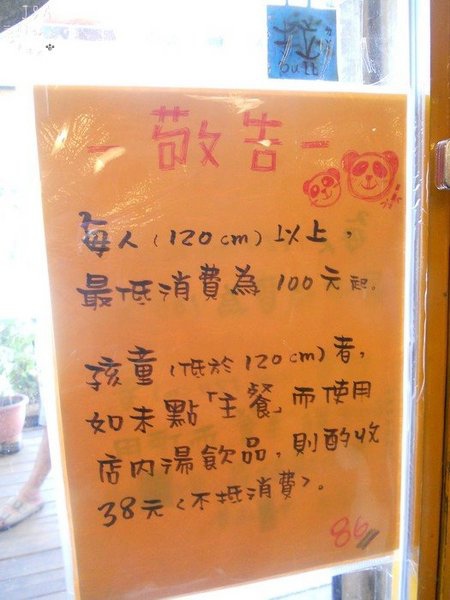 拉
PULL
-敬告-
每人(120cm)以上,
最低消費為100元起。
孩童(低於120cm)者,
如未點「主餐」而使用
店內湯飲品,則酌收
38元<不抵消費>。
86